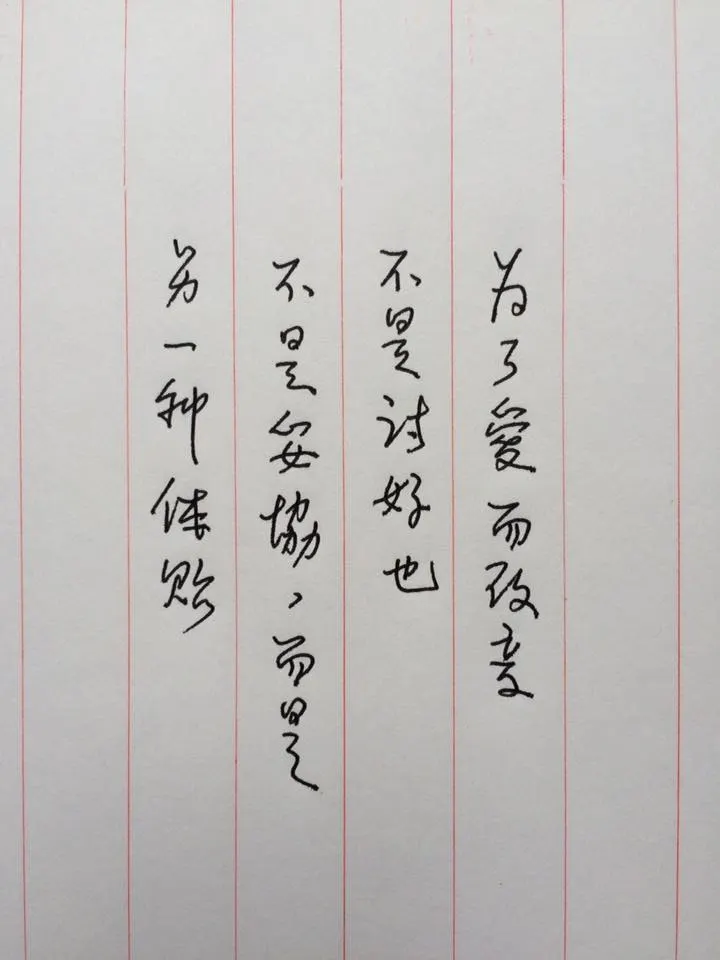 为了愛而改变
不是讨好也
不是妥協，而是
另一种体贴